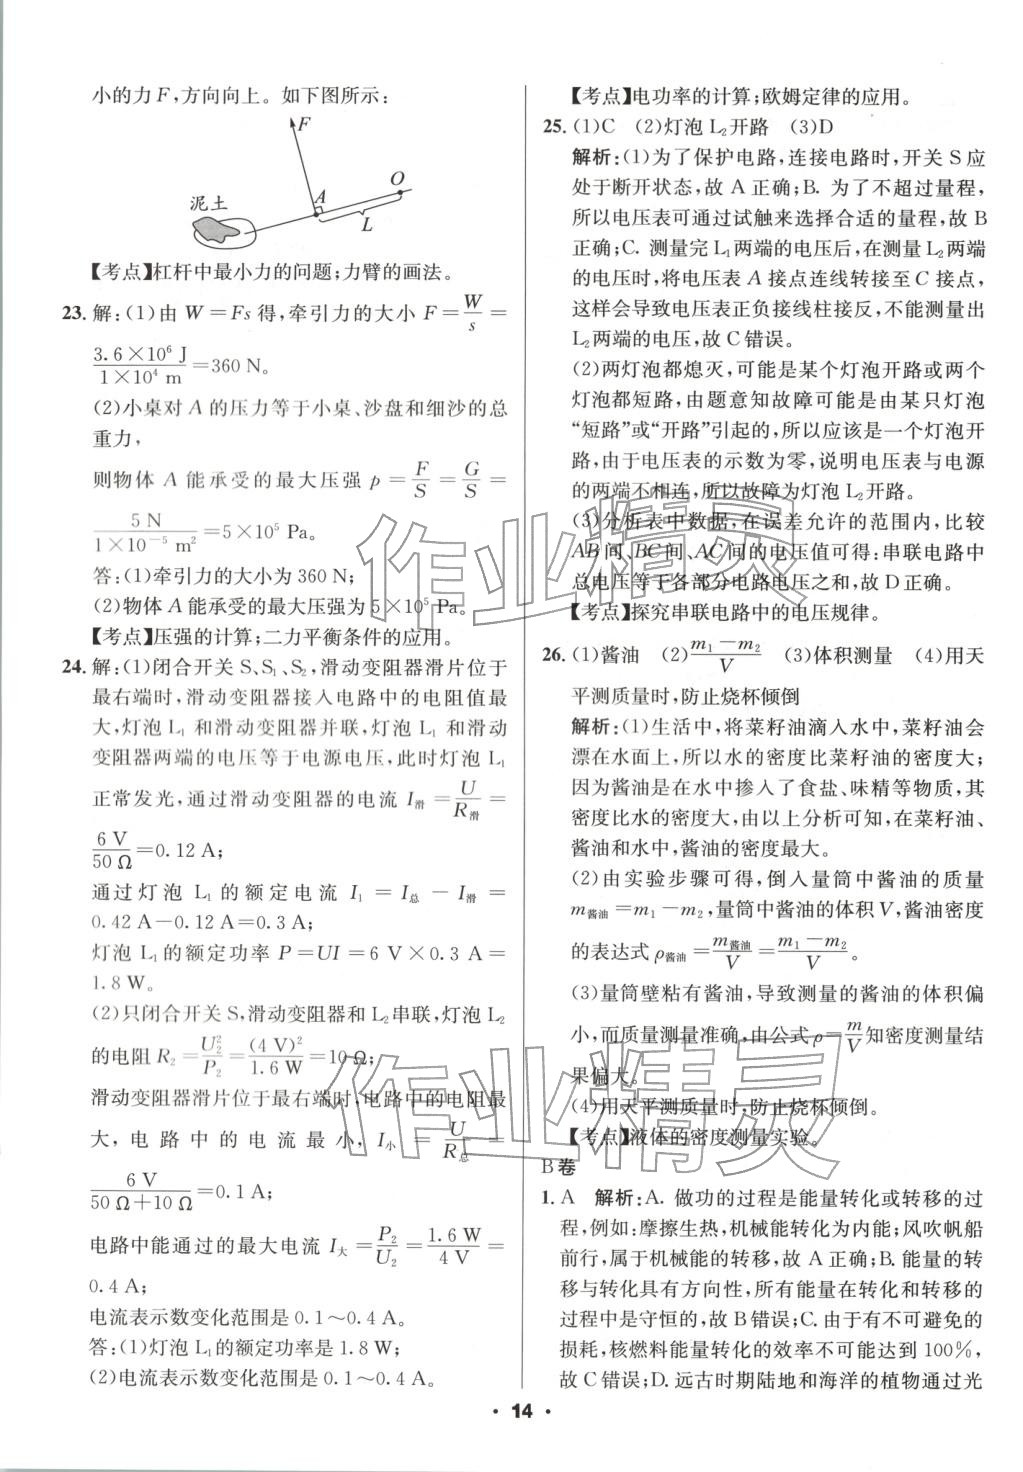 小的力 F,方向向上。如下图所示:
F
A
O
泥土
L
【考点】杠杆中最小力的问题;力臂的画法。
23. 解:(1)由 W=Fs 得,牵引力的大小 F=W/s=
3.6×10⁶ J/1×10⁴ m=360 N。
(2)小桌对 A 的压力等于小桌、沙盘和细沙的总
重力,
则物体 A 能承受的最大压强 p=F/S=G/S=
5 N/1×10⁻⁵ m²=5×10⁵ Pa。
答:(1)牵引力的大小为 360 N;
(2)物体 A 能承受的最大压强为 5×10⁵ Pa。
【考点】压强的计算;二力平衡条件的应用。
24. 解:(1)闭合开关 S、S₁、S₂,滑动变阻器滑片位于
最右端时,滑动变阻器接入电路中的电阻值最
大,灯泡 L₁ 和滑动变阻器并联,灯泡 L₁ 和滑动
变阻器两端的电压等于电源电压,此时灯泡 L₁
正常发光,通过滑动变阻器的电流 I滑=U/R滑=
6 V/50 Ω=0.12 A;
通过灯泡 L₁ 的额定电流 I₁=I总-I滑=
0.42 A-0.12 A=0.3 A;
灯泡 L₁ 的额定功率 P=UI=6 V×0.3 A=
1.8 W。
(2)只闭合开关 S,滑动变阻器和 L₂ 串联,灯泡 L₂
的电阻 R₂=U₂²/P₂=(4 V)²/1.6 W=10 Ω;
滑动变阻器滑片位于最右端时,电路中的电阻最
大,电路中的电流最小,I小=U/R总=
6 V/50 Ω+10 Ω=0.1 A;
电路中能通过的最大电流 I大=P₂/U₂=1.6 W/4 V=
0.4 A;
电流表示数变化范围是 0.1~0.4 A。
答:(1)灯泡 L₁ 的额定功率是 1.8 W;
(2)电流表示数变化范围是 0.1~0.4 A。
【考点】电功率的计算;欧姆定律的应用。
25. (1)C (2)灯泡 L₂ 开路 (3)D
解析:(1)为了保护电路,连接电路时,开关 S 应
处于断开状态,故 A 正确;B. 为了不超过量程,
所以电压表可通过试触来选择合适的量程,故 B
正确;C. 测量完 L₁ 两端的电压后,在测量 L₂ 两端
的电压时,将电压表 A 接点连线转接至 C 接点,
这样会导致电压表正负接线柱接反,不能测量出
L₂ 两端的电压,故 C 错误。
(2)两灯泡都熄灭,可能是某个灯泡开路或两个
灯泡都短路,由题意知故障可能是由某只灯泡
“短路”或“开路”引起的,所以应该是一个灯泡开
路,由于电压表的示数为零,说明电压表与电源
的两端不相连,所以故障为灯泡 L₂ 开路。
(3)分析表中数据,在误差允许的范围内,比较
AB 间、BC 间、AC 间的电压值可得:串联电路中
总电压等于各部分电路电压之和,故 D 正确。
【考点】探究串联电路中的电压规律。
26. (1)酱油 (2)m₁-m₂/V (3)体积测量 (4)用天
平测质量时,防止烧杯倾倒
解析:(1)生活中,将菜籽油滴入水中,菜籽油会
漂在水面上,所以水的密度比菜籽油的密度大;
因为酱油是在水中掺入了食盐、味精等物质,其
密度比水的密度大,由以上分析可知,在菜籽油、
酱油和水中,酱油的密度最大。
(2)由实验步骤可得,倒入量筒中酱油的质量
m酱油=m₁-m₂,量筒中酱油的体积 V,酱油密度
的表达式 ρ酱油=m酱油/V=m₁-m₂/V。
(3)量筒壁粘有酱油,导致测量的酱油的体积偏
小,而质量测量准确,由公式 ρ=m/V知密度测量结
果偏大。
(4)用天平测质量时,防止烧杯倾倒。
【考点】液体的密度测量实验。
B卷
1. A 解析:A. 做功的过程是能量转化或转移的过
程,例如:摩擦生热,机械能转化为内能;风吹帆船
前行,属于机械能的转移,故 A 正确;B. 能量的转
移与转化具有方向性,所有能量在转化和转移的
过程中是守恒的,故 B 错误;C. 由于有不可避免的
损耗,核燃料能量转化的效率不可能达到 100%,
故 C 错误;D. 远古时期陆地和海洋的植物通过光
· 14 ·
作业精灵
作业精灵